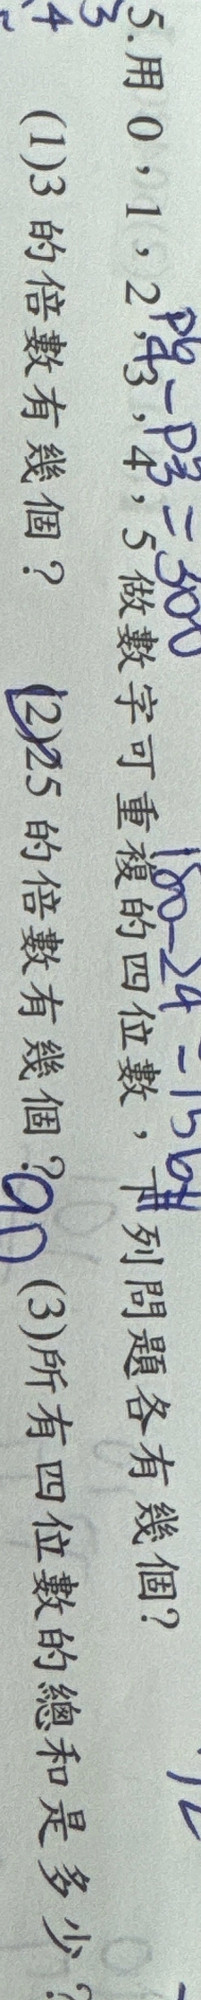 P⁶₄ - P⁵₃ = 300
180-24=156
5. 用 0，1，2，3，4，5 做數字可重複的四位數，下列問題各有幾個？
(1)3 的倍數有幾個？ (2)25 的倍數有幾個？ 90 (3)所有四位數的總和是多少？